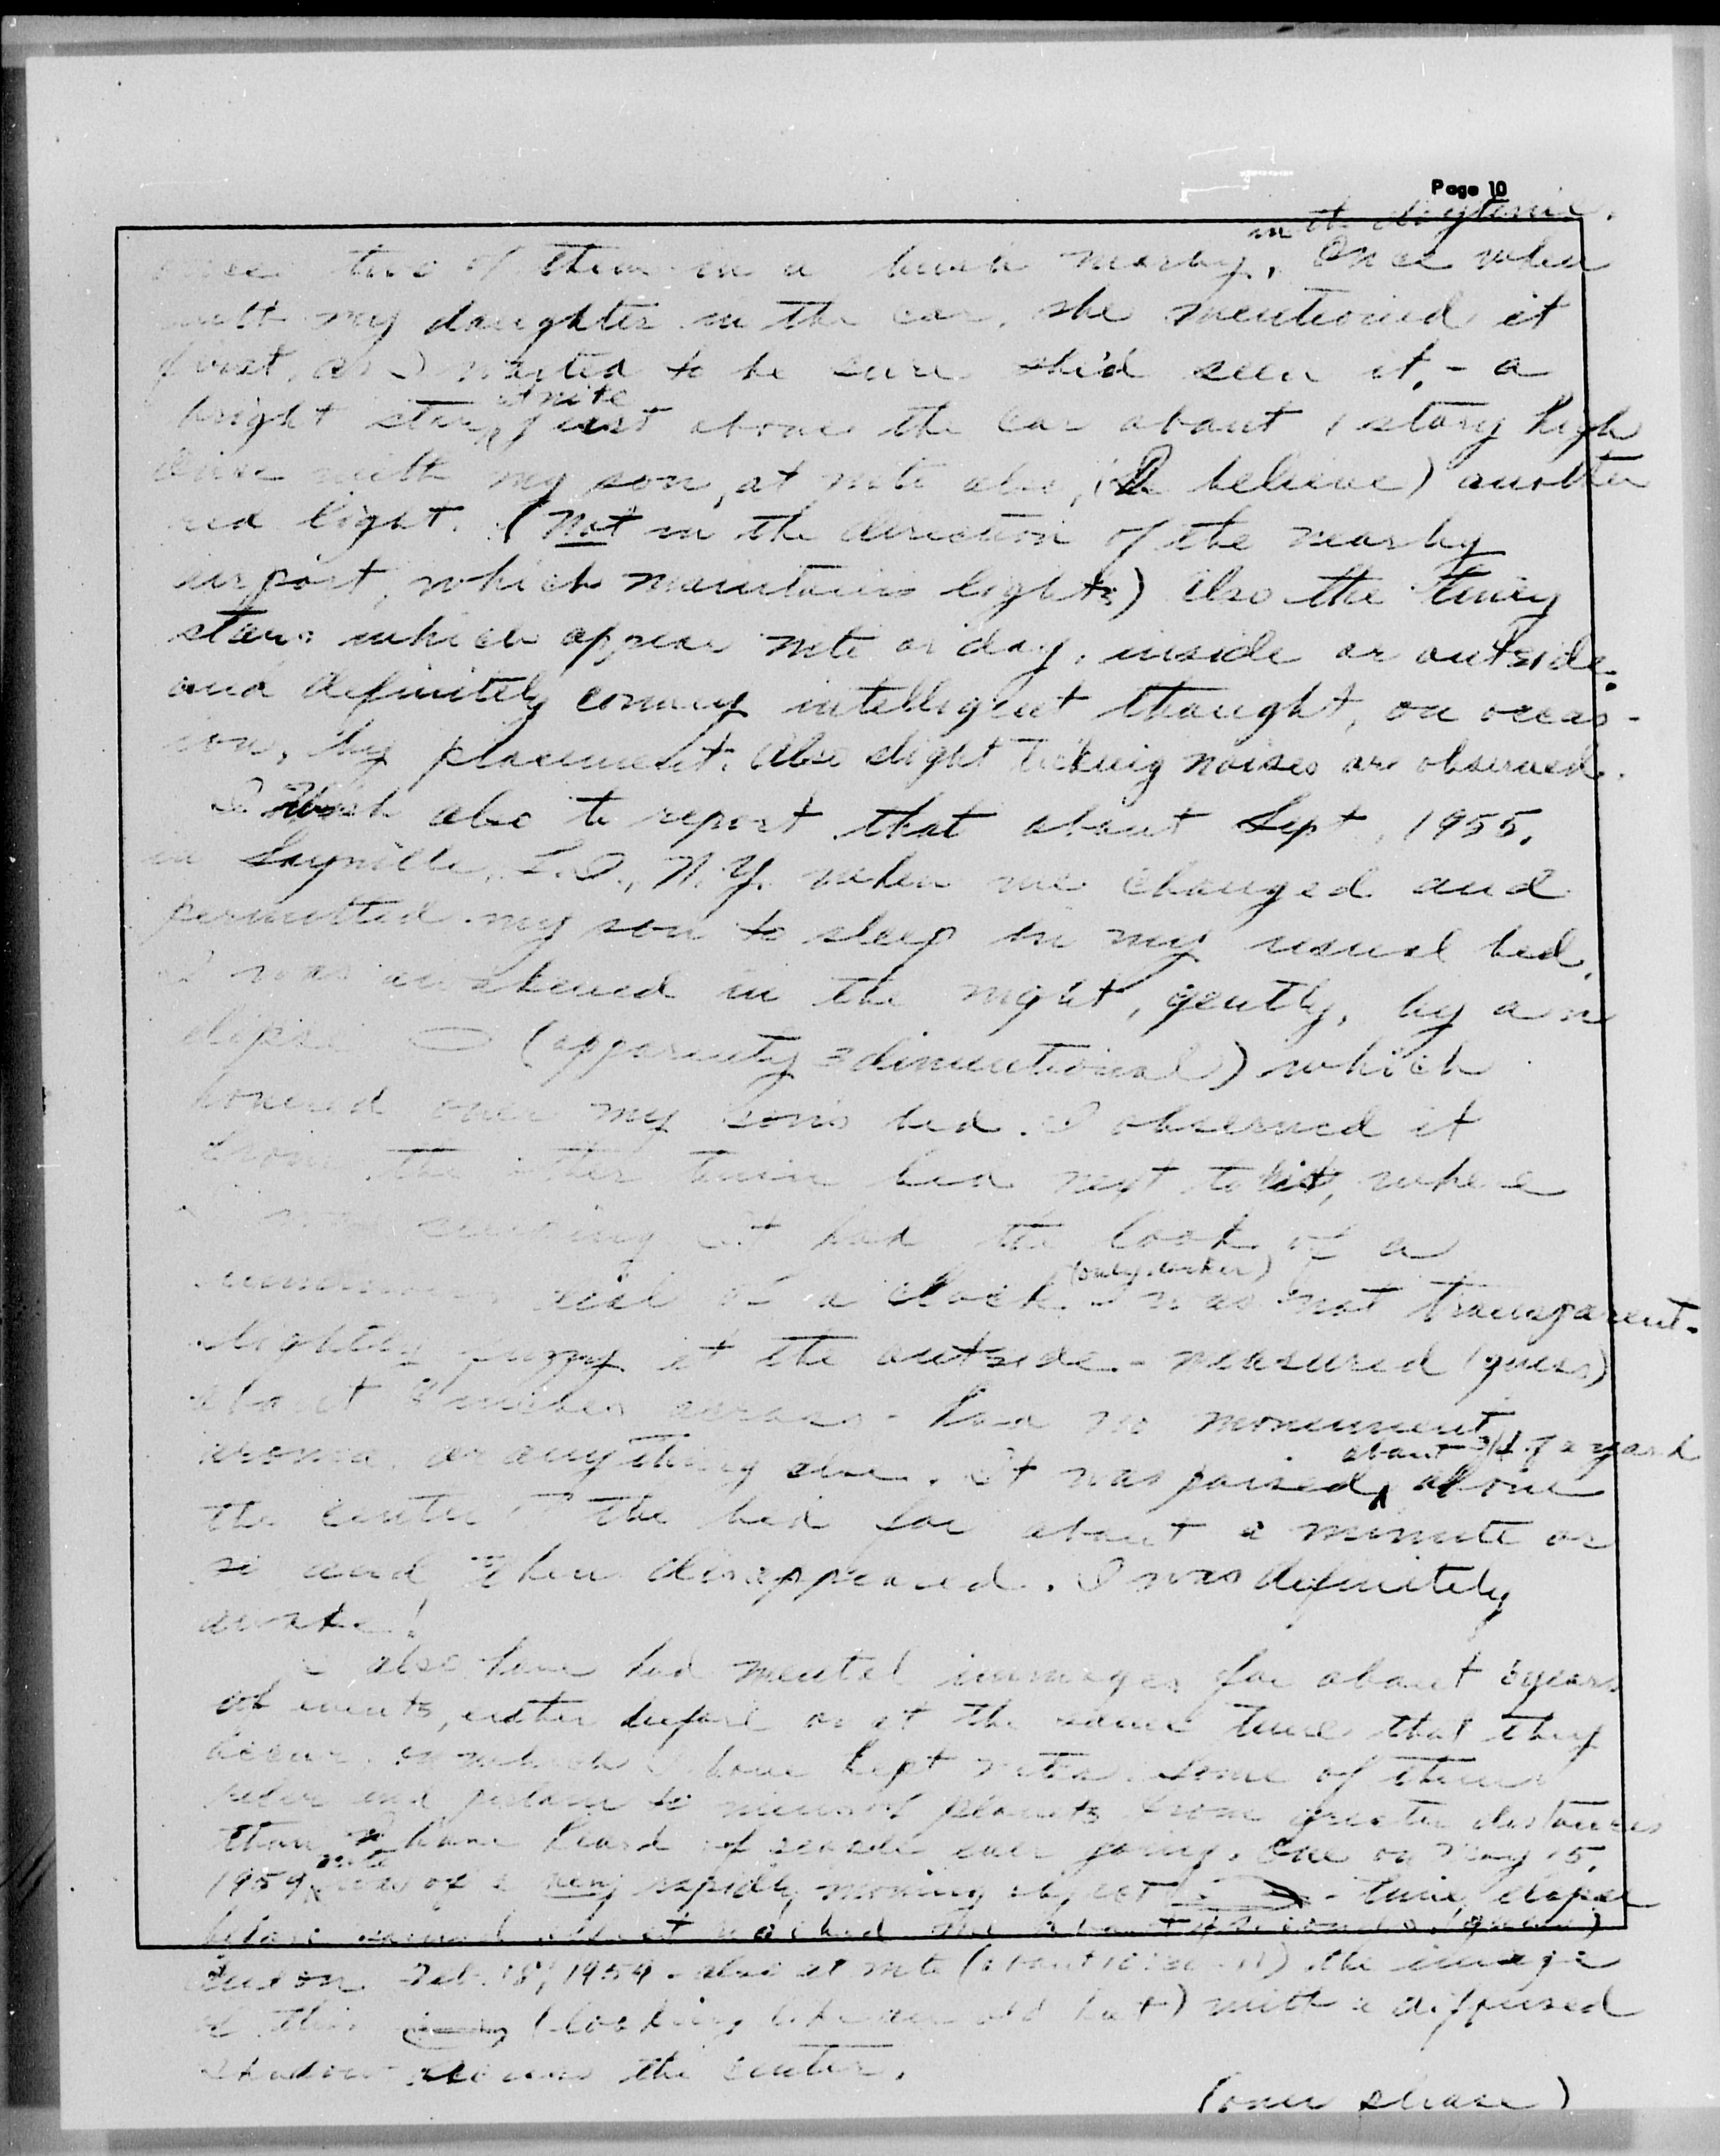 Page 10
in the daytime.
two of them in a bush nearby. Once when
with my daughter in the car, she mentioned it
first, as I wanted to be sure she'd seen it, - a
at nite
bright star, just above the car about 1 story high
Once with my son, at nite also, (I believe) another
red light. (Not in the direction of the nearby
airport, which maintains lights) Also the tiney
stars which appear nite or day, inside or outside.
and definitely convey intelligent thought, on occas-
ion, by placement. Also slight ticking noises are observed.
I wish also to report that about Sept, 1955,
in Sayville, L.I., N.Y. when we changed and
permitted my son to sleep in my usual bed,
I was awakened in the night, gently, by an
elipse (apparently 3 dimentional) which
hovered over my son's bed. I observed it
from the other twin bed next to it, where
I was It had the look of a
(only darker)
dial of a clock - was not transparent -
slightly fuzzy at the outside - measured (guess)
about inches across - had no movement,
about 3/4 of a yard
aroma, or anything else. It was poised above
the center of the bed for about a minute or
so and then disappeared. I was definitely
awake!
I also have had mental immages for about 5 years
of events, either before or at the same time that they
occur, on which I have kept notes. Some of them
and pertain to planets from greater distances
than I have heard of people ever going. One on May 15,
nite
1959, was of a very rapidly moving object - time elapse
before it reached me about seconds (guess)
One on Feb. 18, 1959 - also at nite (about 10:30 - 11) the image
of this (looking like an old hat) with a diffused
shadow across the center.
(over please)